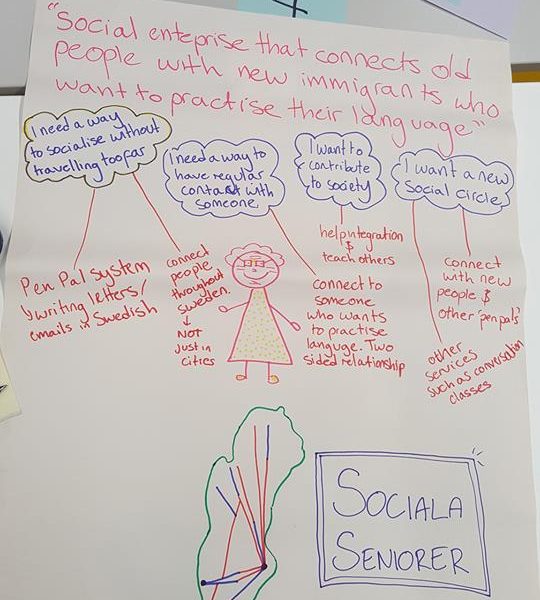 "Social enteprise that connects old
people with new immigrants who
want to practise their language"
I need a way
to socialise without
travelling too far
I need a way to
have regular
contact with
someone
I want to
contribute
to society
I want a new
Social circle
Pen Pal system
writing letters/
emails in Swedish
connect
people
throughout
Sweden.
↓
NOT
Just in
cities
help integration
&
teach others
connect to
someone
who wants
to practise
languge. Two
sided relationship
connect
with new
people &
other 'pen pals'
other
services
such as conversation
classes
SOCIALA
SENIORER